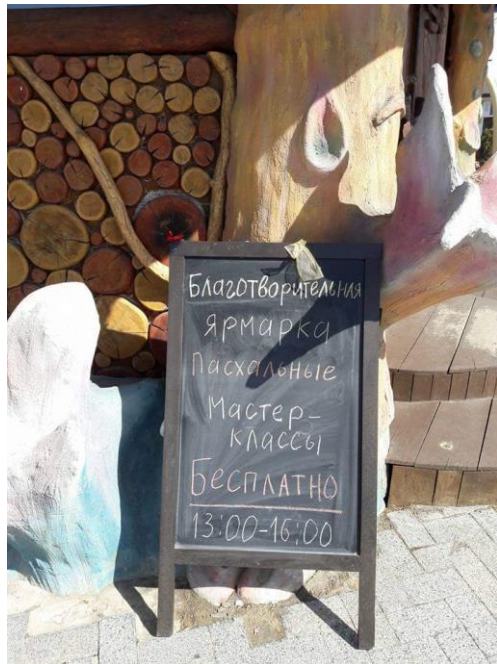 Благотворительная
ярмарка
Пасхальные
Мастер-
классы
Бесплатно
13:00-16:00